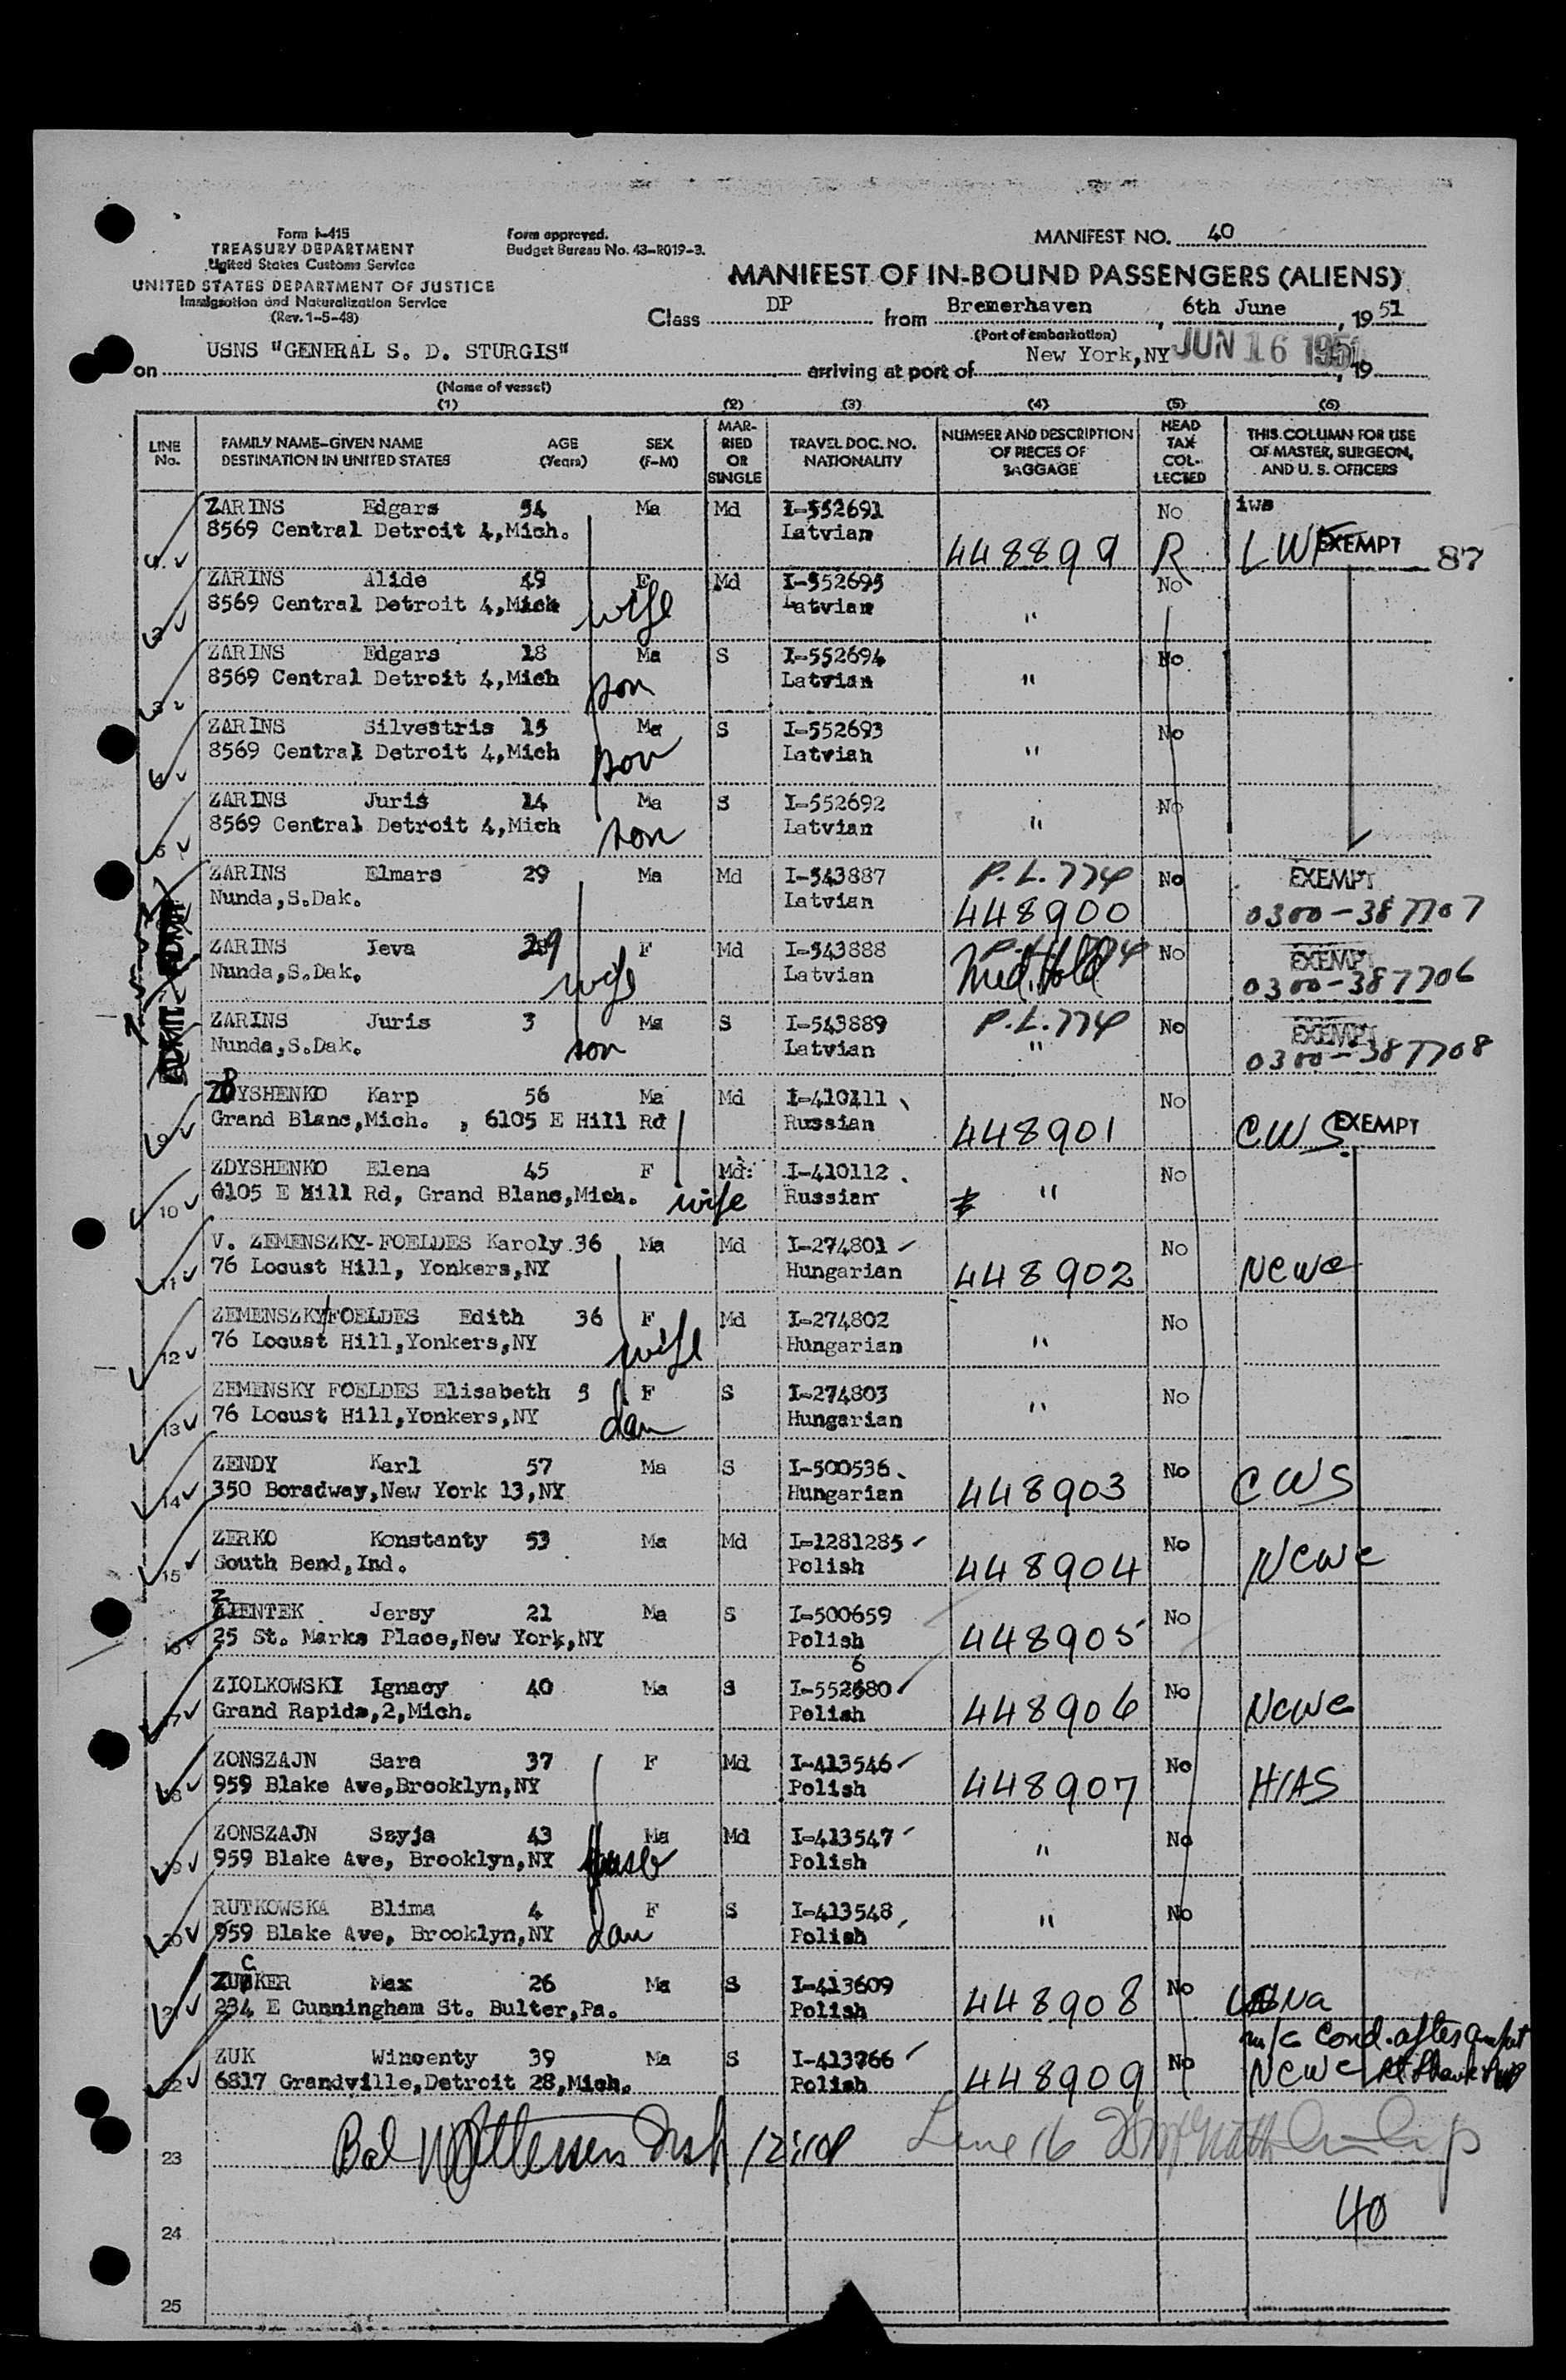 Form I-415
TREASURY DEPARTMENT
United States Customs Service
UNITED STATES DEPARTMENT OF JUSTICE
Immigration and Naturalization Service
(Rev. 1-5-48)
Form approved.
Budget Bureau No. 43-R019-3.
MANIFEST NO. 40
MANIFEST OF IN-BOUND PASSENGERS (ALIENS)
Class DP from Bremerhaven, 6th June, 1951
(Port of embarkation)
on USNS "GENERAL S. D. STURGIS" arriving at port of New York,NY JUN 16 1951, 19
(Name of vessel)
(1) (2) (3) (4) (5) (6)
LINE No. FAMILY NAME-GIVEN NAME DESTINATION IN UNITED STATES AGE (Years) SEX (F-M) MARRIED OR SINGLE TRAVEL DOC. NO. NATIONALITY NUMBER AND DESCRIPTION OF PIECES OF BAGGAGE HEAD TAX COLLECTED THIS COLUMN FOR USE OF MASTER, SURGEON, AND U. S. OFFICERS
ZARINS Edgars 54 Ma Md I-552691 No iwa
8569 Central Detroit 4,Mich. Latvian 448899 R LWF EXEMPT 87
ZARINS Alide 49 F Md I-552695 No
8569 Central Detroit 4,Mich wife Latvian "
ZARINS Edgars 18 Ma S I-552694 No
8569 Central Detroit 4,Mich son Latvian "
ZARINS Silvestris 15 Ma S I-552693 No
8569 Central Detroit 4,Mich son Latvian "
ZARINS Juris 14 Ma S I-552692 No
5 8569 Central Detroit 4,Mich son Latvian "
ZARINS Elmars 29 Ma Md I-543887 P.L.774 No EXEMPT
Nunda,S.Dak. Latvian 448900 0300-387707
ZARINS Ieva 29 F Md I-543888 No EXEMPT
Nunda,S.Dak. wife Latvian Med. Hold 0300-387706
ZARINS Juris 3 Ma S I-543889 P.L.774 No EXEMPT
Nunda,S.Dak. son Latvian " 0300-387708
ZDYSHENKO Karp 56 Ma Md I-410111 No
9 Grand Blanc,Mich. , 6105 E Hill Rd Russian 448901 CWS EXEMPT
ZDYSHENKO Elena 45 F Md: I-410112 No
10 6105 E Hill Rd, Grand Blanc,Mich. wife Russian "
V. ZEMENSZKY-FOELDES Karoly 36 Ma Md I-274801 No
11 76 Locust Hill, Yonkers,NY Hungarian 448902 NCWC
ZEMENSZKY/FOELDES Edith 36 F Md I-274802 No
12 76 Locust Hill,Yonkers,NY wife Hungarian "
ZEMENSKY FOELDES Elisabeth 5 F S I-274803 No
13 76 Locust Hill,Yonkers,NY dau Hungarian "
ZENDY Karl 57 Ma S I-500536 No
14 350 Borsdway,New York 13,NY Hungarian 448903 CWS
ZERKO Konstanty 53 Ma Md I-1281285 No
15 South Bend,Ind. Polish 448904 NCWC
ZIENTEK Jersy 21 Ma S I-500659 No
16 25 St. Marks Place,New York,NY Polish 448905
6
ZIOLKOWSKI Ignacy 40 Ma S I-552680 No
17 Grand Rapids,2,Mich. Polish 448906 NCWC
ZONSZAJN Sara 37 F Md I-413546 No
18 959 Blake Ave,Brooklyn,NY Polish 448907 HIAS
ZONSZAJN Szyja 43 Ma Md I-413547 No
19 959 Blake Ave, Brooklyn,NY husb Polish "
RUTKOWSKA Blima 4 F S I-413548 No
20 959 Blake Ave, Brooklyn,NY dau Polish "
ZUCKER Max 26 Ma S I-413609 No
21 234 E Cunningham St. Bulter,Pa. Polish 448908 USNA
m/c Cond. after
ZUK Wincenty 39 Ma S I-413766 No
22 6817 Grandville,Detroit 28,Mich. Polish 448909 NCWC
23
40
24
25